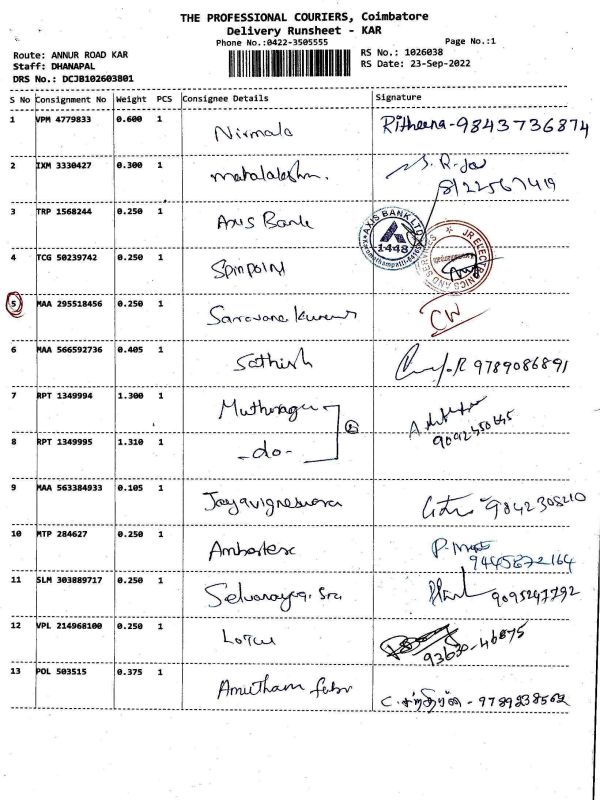 THE PROFESSIONAL COURIERS, Coimbatore
Delivery Runsheet - KAR
Phone No.:0422-3505555 Page No.:1
Route: ANNUR ROAD KAR RS No.: 1026038
Staff: DHANAPAL RS Date: 23-Sep-2022
DRS No.: DCJB102603801
S No Consignment No Weight PCS Consignee Details Signature
1 VPM 4779833 0.600 1 Nirmala Ritheena-9843736874
2 IXM 3330427 0.300 1 mahalakshmi.
8122567419
3 TRP 1568244 0.250 1 Axis Bank
AXIS BANK LTD
1448
JR ELECTRONICS AND SERVICES
4 TCG 50239742 0.250 1 Spinpoint
5 MAA 295518456 0.250 1 Saravana Kumar CW
6 MAA 566592736 0.405 1 Sathish 9789086891
7 RPT 1349994 1.300 1
8 RPT 1349995 1.310 1 -do-
9 MAA 563384933 0.105 1 9842308210
10 MTP 284627 0.250 1
9445872164
11 SLM 303889717 0.250 1 9095247792
12 VPL 214968100 0.250 1 Lotus
93630-46875
13 POL 503515 0.375 1 Amutham - 9789238562